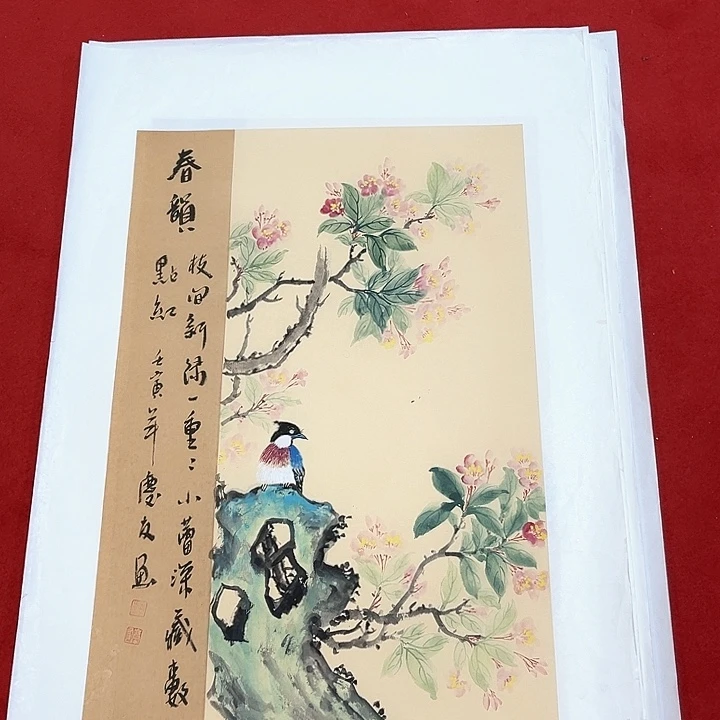 春韻
枝间新綠一重重小蕾深藏數
點紅 壬寅年慶友畫